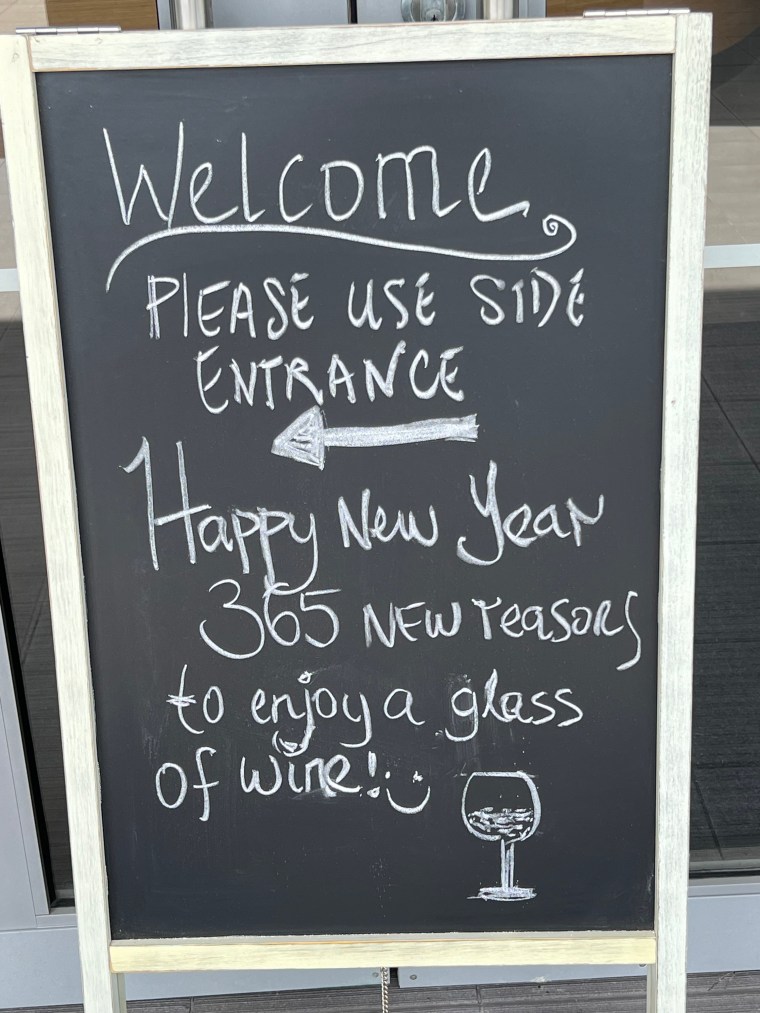 Welcome
PLEASE USE SIDE
ENTRANCE
Happy New Year
365 NEW reasons
to enjoy a glass
of wine!